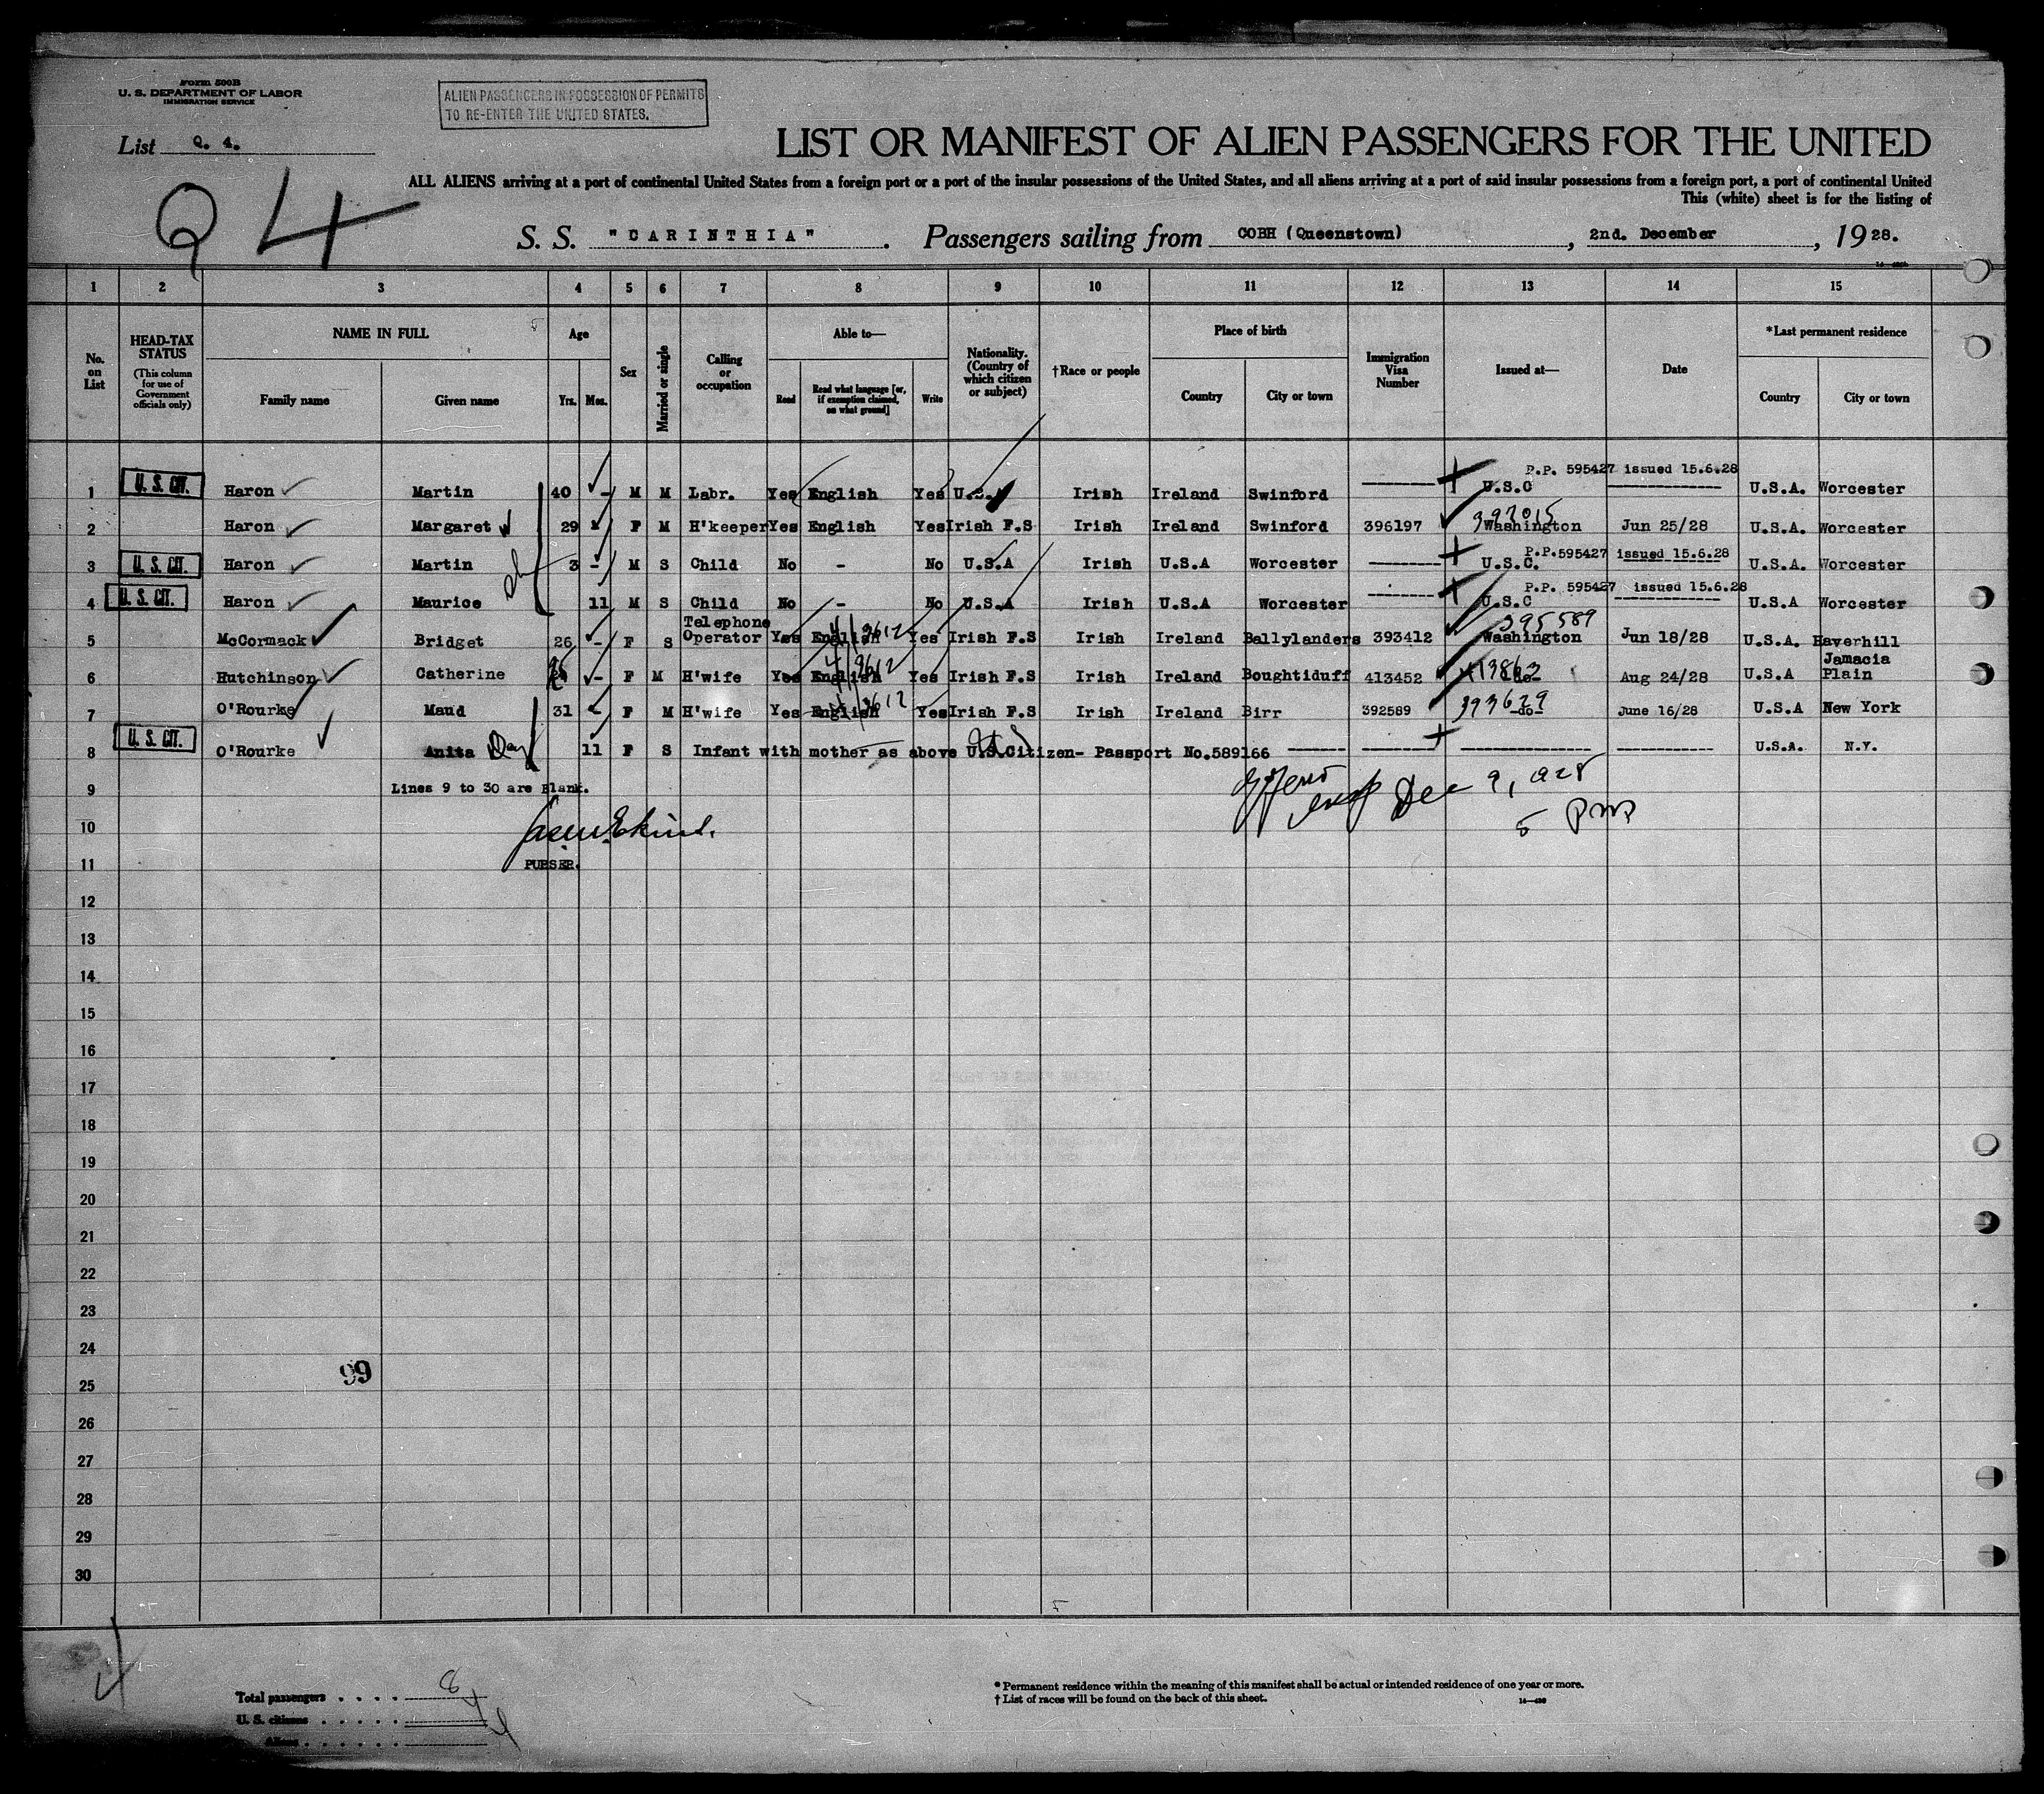 Form 500B
U. S. DEPARTMENT OF LABOR
IMMIGRATION SERVICE
ALIEN PASSENGERS IN POSSESSION OF PERMITS
TO RE-ENTER THE UNITED STATES.
List Q. 4.
Q 4
LIST OR MANIFEST OF ALIEN PASSENGERS FOR THE UNITED
ALL ALIENS arriving at a port of continental United States from a foreign port or a port of the insular possessions of the United States, and all aliens arriving at a port of said insular possessions from a foreign port, a port of continental United
This (white) sheet is for the listing of
S. S. "CARINTHIA". Passengers sailing from COBH (Queenstown), 2nd. December, 1928.
1 2 3 4 5 6 7 8 9 10 11 12 13 14 15
No. on List
HEAD-TAX STATUS (This column for use of Government officials only)
NAME IN FULL
Family name Given name
Age
Yrs. Mos.
Sex
Married or single
Calling or occupation
Able to—
Read Read what language [or, if exemption claimed, on what ground] Write
Nationality. (Country of which citizen or subject)
†Race or people
Place of birth
Country City or town
Immigration Visa Number
Issued at—
Date
*Last permanent residence
Country City or town
P.P. 595427 issued 15.6.28
1 U. S. CIT. Haron Martin 40 - M M Labr. Yes English Yes U.S.A Irish Ireland Swinford U.S.C U.S.A. Worcester
397015
2 Haron Margaret 29 F M H'keeper Yes English Yes Irish F.S Irish Ireland Swinford 396197 Washington Jun 25/28 U.S.A. Worcester
P.P. 595427 issued 15.6.28
3 U. S. CIT. Haron Martin 3 - M S Child No - No U.S.A Irish U.S.A Worcester U.S.C. U.S.A. Worcester
P.P. 595427 issued 15.6.28
4 U. S. CIT. Haron Maurice 11 M S Child No - No U.S.A Irish U.S.A Worcester U.S.C U.S.A Worcester
395589
5 McCormack Bridget 26 - F S Telephone Operator Yes English Yes Irish F.S Irish Ireland Ballylanders 393412 Washington Jun 18/28 U.S.A. Haverhill
6 Hutchinson Catherine - F M H'wife Yes English Yes Irish F.S Irish Ireland Boughtiduff 413452 -do- Aug 24/28 U.S.A Jamacia Plain
393629
7 O'Rourke Maud 31 - F M H'wife Yes English Yes Irish F.S Irish Ireland Birr 392589 -do- June 16/28 U.S.A New York
8 U. S. CIT. O'Rourke Anita 11 F S Infant with mother as above U.S.Citizen- Passport No.589166 U.S.A. N.Y.
9 Lines 9 to 30 are Blank.
Dec 9, 1928
5 PM
10
PURSER.
11
12
13
14
15
16
17
18
19
20
21
22
23
24
99
25
26
27
28
29
30
Total passengers . . . . 8
U. S. citizens . . . . .
Aliens . . . . . .
* Permanent residence within the meaning of this manifest shall be actual or intended residence of one year or more.
† List of races will be found on the back of this sheet.